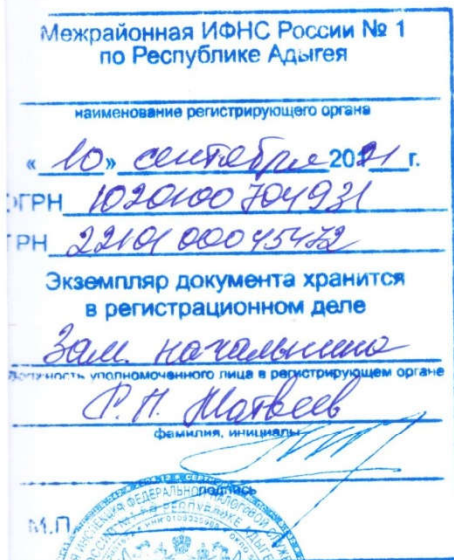 Межрайонная ИФНС России № 1
по Республике Адыгея
наименование регистрирующего органа
« 10 » сентября 2021 г.
ОГРН 1020100704931
ГРН 2210100045472
Экземпляр документа хранится
в регистрационном деле
Зам. начальника
должность уполномоченного лица в регистрирующем органе
Р.П. Матвеев
фамилия, инициалы
подпись
М.П.